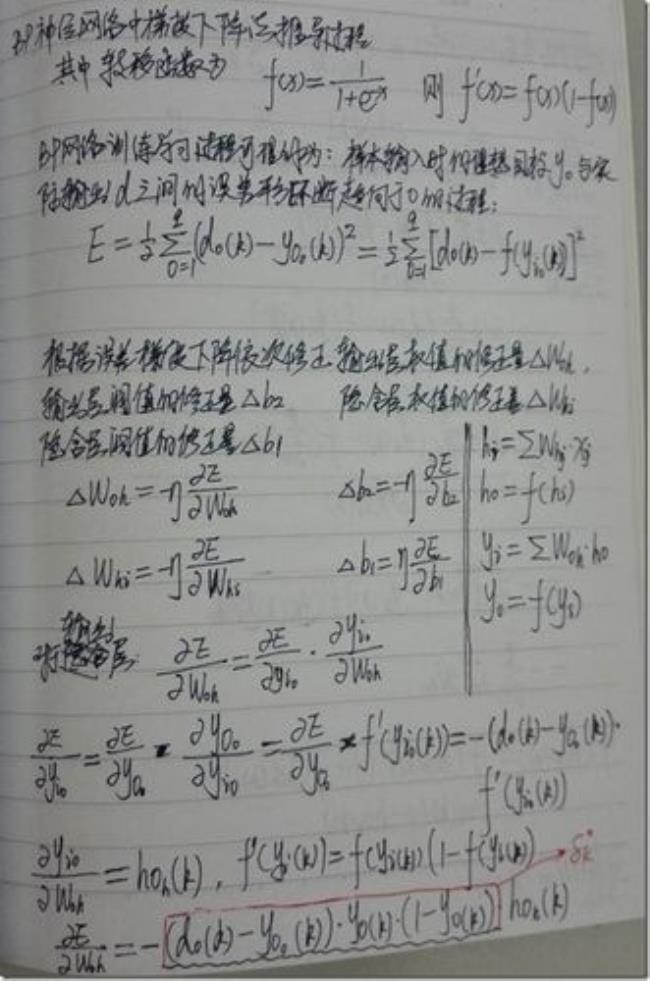 BP神经网络中梯度下降法推导过程
其中转移函数为 f(x)=1/(1+e^-x) 则 f'(x)=f(x)(1-f(x))
BP网络训练学习过程可理解为：样本输入时的理想目标y₀与实
际输出d之间的误差平方不断趋向于0的过程：
E = ½ Σ_{o=1}^{q} (d₀(k)-y_{O₀}(k))² = ½ Σ_{o=1}^{q} [d₀(k)-f(y_{i₀}(k))]²
根据误差梯度下降依次修正输出层权值的修正量△W_{oh}，
输出层阈值的修正量△b2 隐含层权值的修正量△W_{hi}
隐含层阈值的修正量△b1
△W_{oh} = -η ∂E/∂W_{oh} △b₂ = -η ∂E/∂b₂
△W_{hi} = -η ∂E/∂W_{hi} △b₁ = η ∂E/∂b₁
h_i = ΣW_{hj}·x_j
ho = f(h_i)
y_i = ΣW_{oh}·ho
y₀ = f(y_i)
输出
对隐含层: ∂E/∂W_{oh} = ∂E/∂y_{io} · ∂y_{io}/∂W_{oh}
∂E/∂y_{io} = ∂E/∂y_{O₀} * ∂y_{O₀}/∂y_{io} = ∂E/∂y_{O₀} * f'(y_{i₀}(k)) = -(d₀(k)-y_{O₀}(k))·
f'(y_{i₀}(k))
∂y_{io}/∂W_{oh} = ho_h(k), f'(y_i(k)) = f(y_i(k))(1-f(y_i(k)) δ_k°
∂E/∂W_{oh} = -(d₀(d)-y_{O₀}(k))·y_O(k)·(1-y_O(k)) ho_h(k)